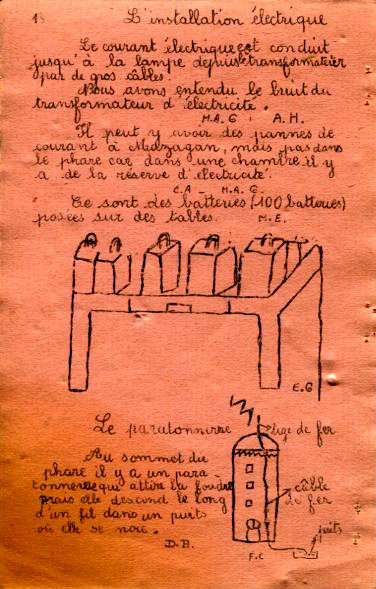 L'installation électrique
Le courant électrique est conduit
jusqu'à la lampe depuis le transformateur
par de gros câbles.
Nous avons entendu le bruit du
transformateur d'électricité.
M.A.G. A.H.
Il peut y avoir des pannes de
courant à Madzagan, mais pas dans
le phare car dans une chambre il y
a de la réserve d'électricité.
C.A - M.A.G.
Ce sont des batteries (100 batteries)
posées sur des tables. M.E.
E.G
Le paratonnerre
tige de fer
Au sommet du
phare il y a un para
tonnerre qui attire la foudre
mais elle descend le long
d'un fil dans un puits
où elle se noie.
D.B.
câble
de fer
puits
F.C